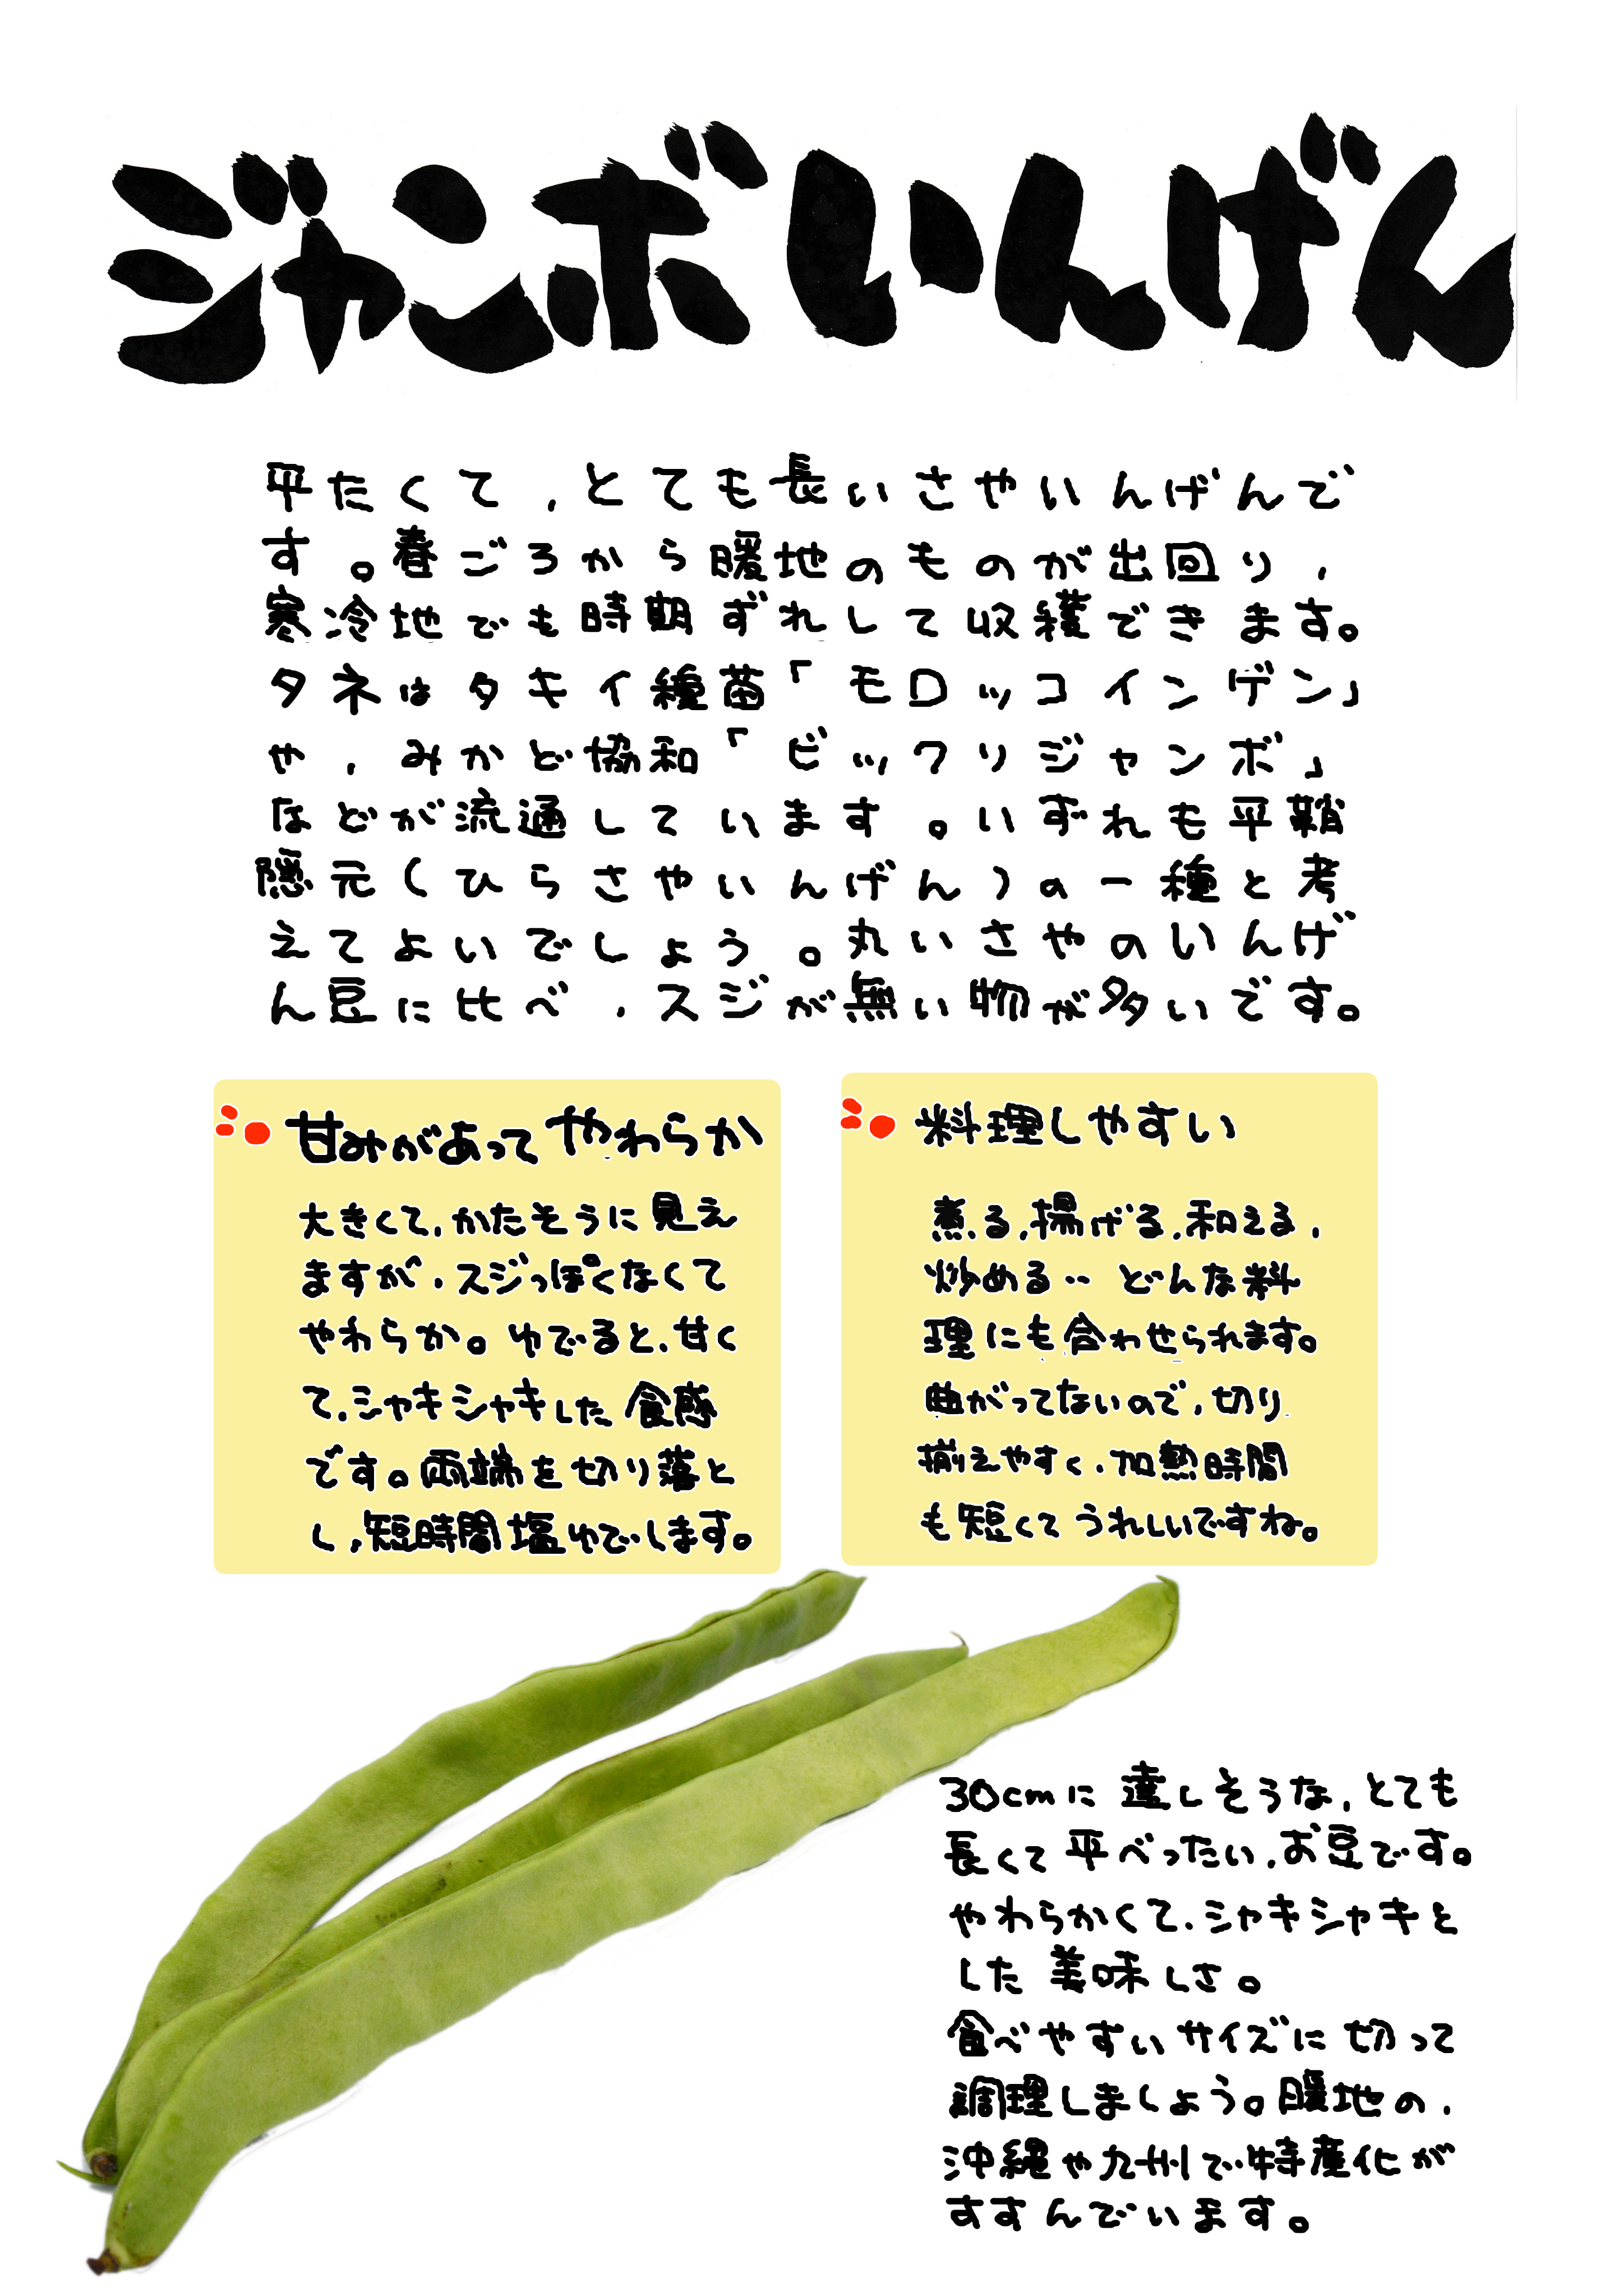 ジャンボいんげん
平たくて,とても長いさやいんげんで
す。春ごろから暖地のものが出回り,
寒冷地でも時期ずれして収穫できます。
タネはタキイ種苗「モロッコインゲン」
や,みかど協和「ビックリジャンボ」
などが流通しています。いずれも平鞘
隠元(ひらさやいんげん)の一種と考
えてよいでしょう。丸いさやのいんげ
ん豆に比べ,スジが無い物が多いです。
甘みがあってやわらか
大きくて,かたそうに見え
ますが,スジっぽくなくて
やわらか。ゆでると,甘く
て,シャキシャキした食感
です。両端を切り落と
し,短時間塩ゆでします。
料理しやすい
煮る,揚げる,和える,
炒める‥どんな料
理にも合わせられます。
曲がってないので,切り
揃えやすく,加熱時間
も短くてうれしいですね。
30cmに達しそうな,とても
長くて平べったい,お豆です。
やわらかくて,シャキシャキと
した美味しさ。
食べやすいサイズに切って
調理しましょう。暖地の,
沖縄や九州で特産化が
すすんでいます。